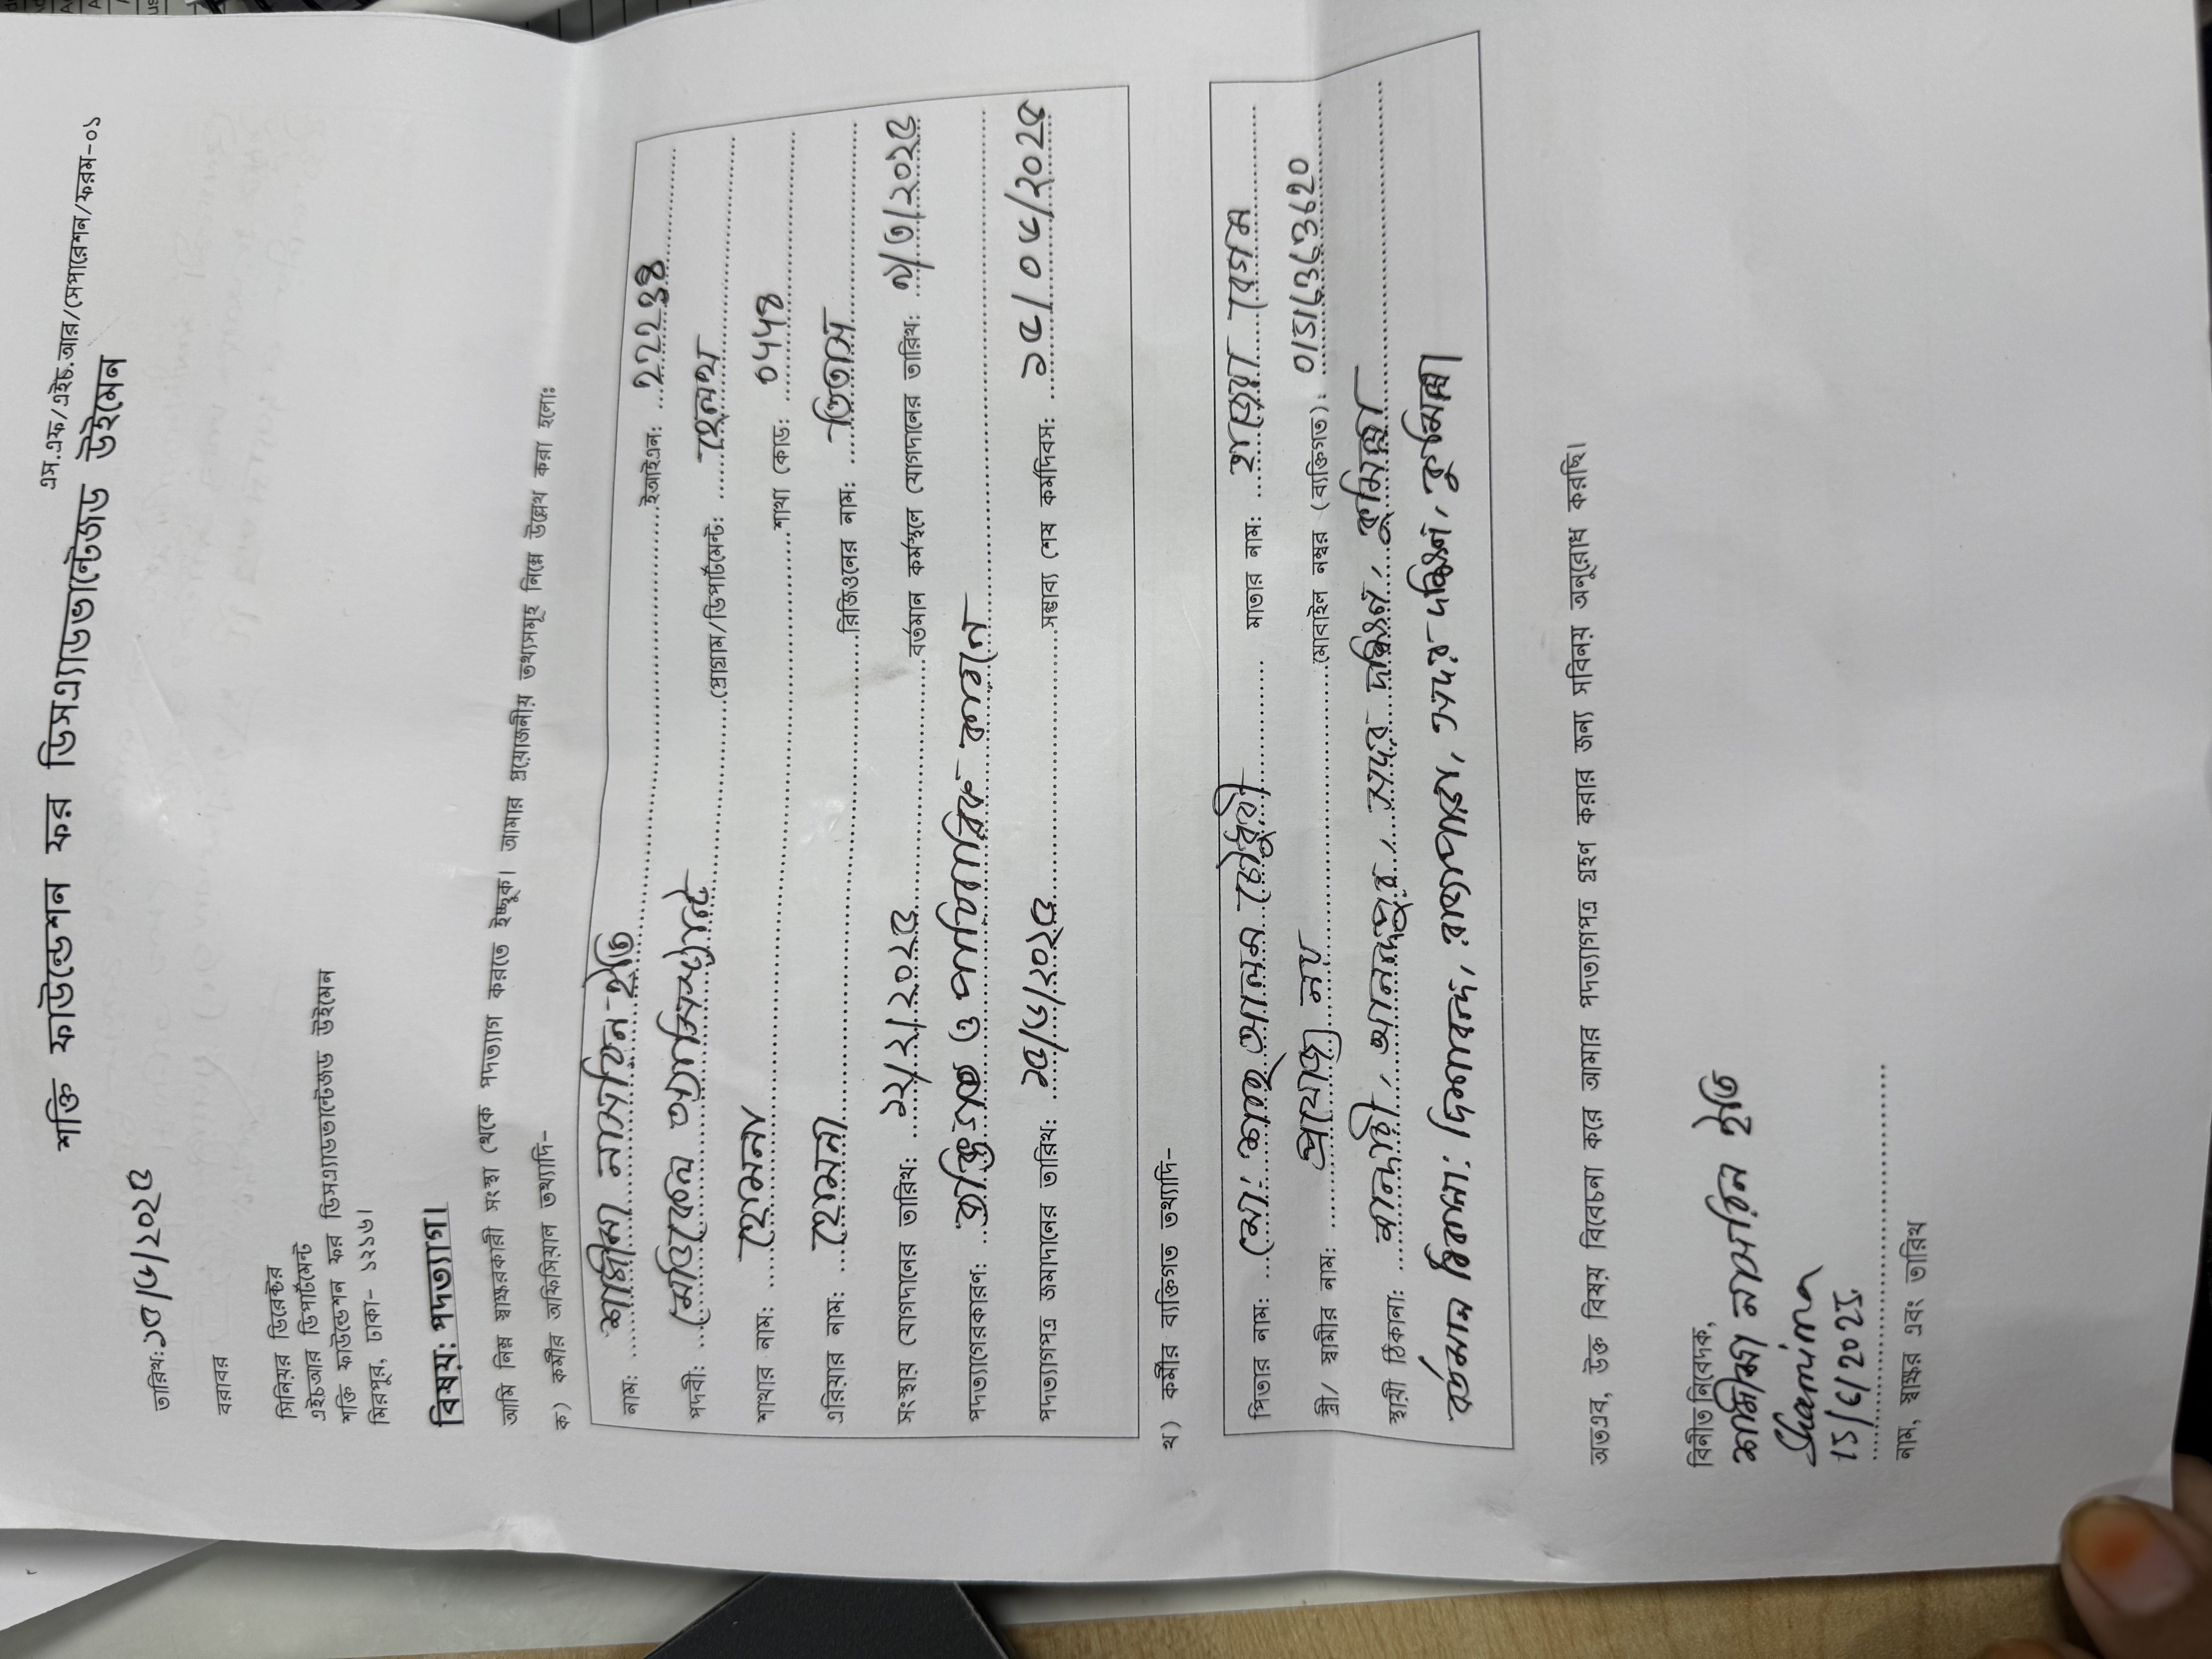 এস.এফ/এইচ.আর/সেপারেশন/ফরম-০১
শক্তি ফাউন্ডেশন ফর ডিসএ্যাডভান্টেজড উইমেন
তারিখ: ১৫/৬/২০২৫
বরাবর
সিনিয়র ডিরেক্টর
এইচআর ডিপার্টমেন্ট
শক্তি ফাউন্ডেশন ফর ডিসএ্যাডভান্টেজড উইমেন
মিরপুর, ঢাকা- ১২১৬।
বিষয়: পদত্যাগ।
আমি নিম্ন স্বাক্ষরকারী সংস্থা থেকে পদত্যাগ করতে ইচ্ছুক। আমার প্রয়োজনীয় তথ্যসমূহ নিম্নে উল্লেখ করা হলো:
ক) কর্মীর অফিসিয়াল তথ্যাদি-
নাম: শামীমা নাসরিন ইতি ইআইএন:
পদবী: মেডিকেল এ্যাসিস্ট্যান্ট প্রোগ্রাম/ডিপার্টমেন্ট: হেলথ
শাখার নাম: হোমনা শাখা কোড:
এরিয়ার নাম: হোমনা রিজিওনের নাম: তিতাস
সংস্থায় যোগদানের তারিখ: ১২/২/২০২৫ বর্তমান কর্মস্থলে যোগদানের তারিখ: ৯/৩/২০২৫
পদত্যাগেরকারণ: ব্যক্তিগত ও পারিবারিক কারনে
পদত্যাগপত্র জমাদানের তারিখ: ১৫/৬/২০২৫ সম্ভাব্য শেষ কর্মদিবস:
খ) কর্মীর ব্যক্তিগত তথ্যাদি-
পিতার নাম: মো: শাহ আলম চৌধুরী মাতার নাম: বেগম
স্ত্রী/ স্বামীর নাম: প্রযোজ্য নয় মোবাইল নম্বর (ব্যক্তিগত):
স্থায়ী ঠিকানা: সদর দক্ষিণ, কুমিল্লা
বর্তমান ঠিকানা: দিশাবন্দ, রাজাপাড়া, সদর দক্ষিণ, কুমিল্লা।
অতএব, উক্ত বিষয় বিবেচনা করে আমার পদত্যাগপত্র গ্রহণ করার জন্য সবিনয় অনুরোধ করছি।
বিনীত নিবেদক,
শামীমা নাসরিন ইতি
Shamima
15/6/2025
নাম, স্বাক্ষর এবং তারিখ